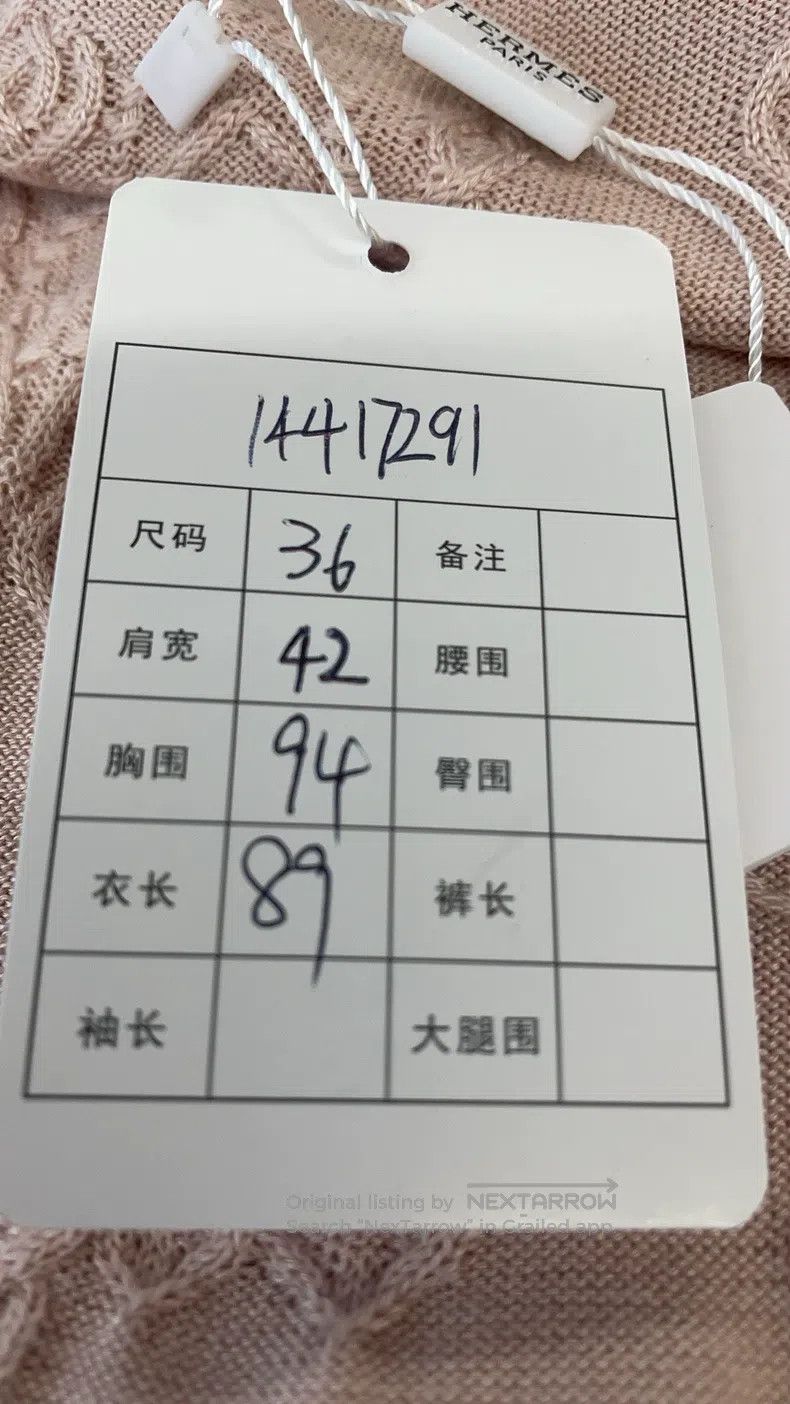 HERMES
PARIS
14417291
尺码 36 备注
肩宽 42 腰围
胸围 94 臀围
衣长 89 裤长
袖长 大腿围
Original listing by NEXTARROW
Search "NexTarrow" in Grailed app